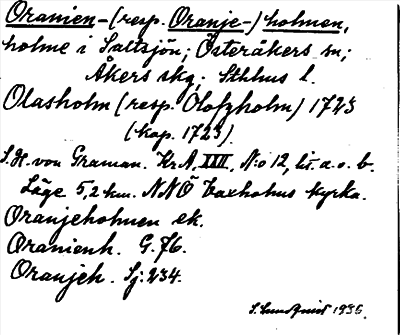 Oranien-(resp. Oranje-)holmen,
holme i Saltsjön; Österåkers sn;
Åkers skg; Sthlms l.
Olasholm (resp. Olofzholm) 1723
(kop. 1723).
S. H. von Graman. Kr.A. XXII, N:o 12, lit. a. o. b.
Läge 5,2 km. NNÖ Vaxholms kyrka.
Oranjeholmen ek.
Oranienh. G. 76.
Oranjeh. Sj. 234.
S. Lundquist 1935.